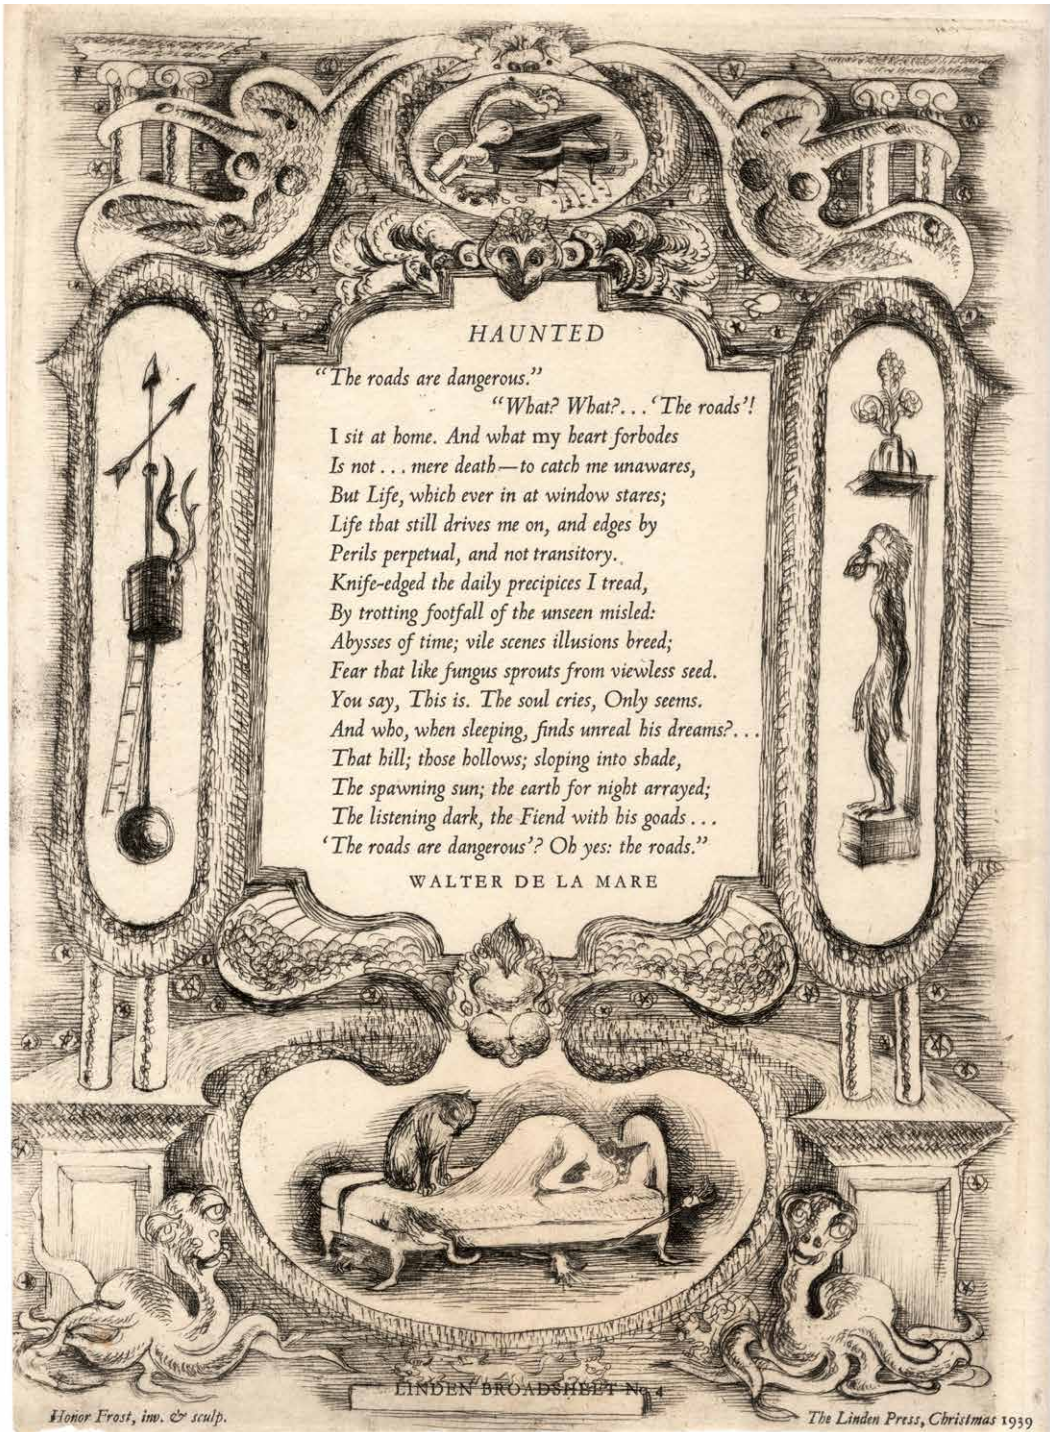 HAUNTED
“The roads are dangerous.”
“What? What?. . . ‘The roads’!
I sit at home. And what my heart forbodes
Is not . . . mere death—to catch me unawares,
But Life, which ever in at window stares;
Life that still drives me on, and edges by
Perils perpetual, and not transitory.
Knife-edged the daily precipices I tread,
By trotting footfall of the unseen misled:
Abysses of time; vile scenes illusions breed;
Fear that like fungus sprouts from viewless seed.
You say, This is. The soul cries, Only seems.
And who, when sleeping, finds unreal his dreams?. . .
That hill; those hollows; sloping into shade,
The spawning sun; the earth for night arrayed;
The listening dark, the Fiend with his goads . . .
‘The roads are dangerous’? Oh yes: the roads.”
WALTER DE LA MARE
LINDEN BROADSHEET No 4
Honor Frost, inv. & sculp.
The Linden Press, Christmas 1939